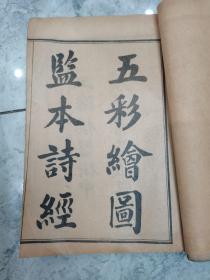 五彩繪圖
監本詩經